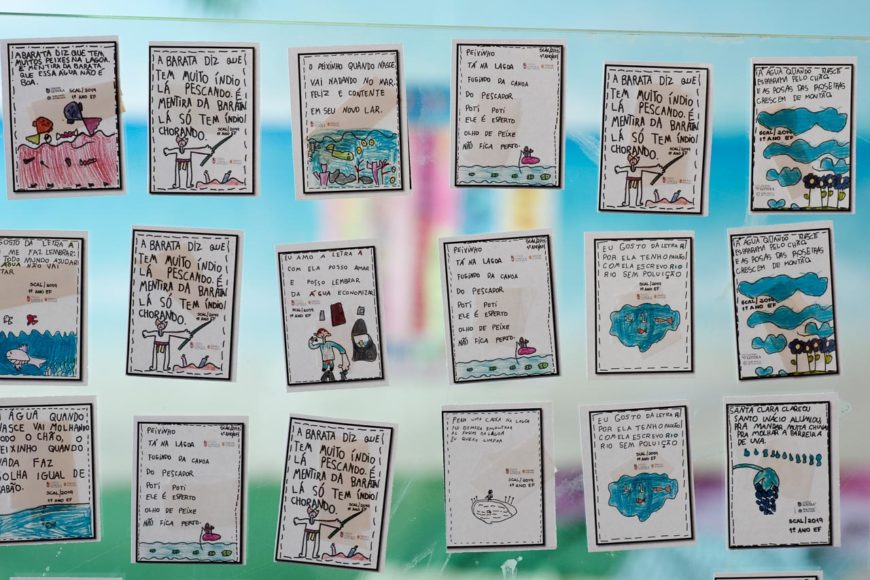 A BARATA DIZ QUE TEM
MUITOS PEIXES NA LAGOA.
É MENTIRA DA BARATA
QUE ESSA ÁGUA NÃO É
BOA.
SCAL/2019
1º ANO EF
A BARATA DIZ QUE
TEM MUITO ÍNDIO
LÁ PESCANDO. É
MENTIRA DA BARATA
LÁ SÓ TEM ÍNDIO
CHORANDO.
SCAL/2019
1º ANO EF
O PEIXINHO QUANDO NASCE,
VAI NADANDO NO MAR,
FELIZ E CONTENTE
EM SEU NOVO LAR.
PEIXINHO
TÁ NA LAGOA
FUGINDO DA CANOA
DO PESCADOR
POTÍ POTÍ
ELE É ESPERTO
OLHO DE PEIXE
NÃO FICA PERTO.
A BARATA DIZ QUE
TEM MUITO ÍNDIO
LÁ PESCANDO. É
MENTIRA DA BARATA
LÁ SÓ TEM ÍNDIO
CHORANDO.
SCAL/2019
1º ANO EF
A ÁGUA QUANDO NASCE
ESPARRAMA PELO CHÃO
E AS ROSAS DAS ROSEIRAS
CRESCEM DE MONTÃO.
SCAL/2019
1º ANO EF
GOSTO DA LETRA A
ME FAZ LEMBRAR:
TODO MUNDO AJUDAR
ÁGUA NÃO VAI
SCAL/2019
1º ANO EF
A BARATA DIZ QUE
TEM MUITO ÍNDIO
LÁ PESCANDO. É
MENTIRA DA BARATA
LÁ SÓ TEM ÍNDIO
CHORANDO.
SCAL/2019
1º ANO EF
EU AMO A LETRA A
COM ELA POSSO AMAR
E POSSO LEMBRAR
DA ÁGUA ECONOMIZAR
SCAL/2019
1º ANO EF
PEIXINHO
TÁ NA LAGOA
FUGINDO DA CANOA
DO PESCADOR
POTÍ POTÍ
ELE É ESPERTO
OLHO DE PEIXE
NÃO FICA PERTO.
EU GOSTO DA LETRA R
POR ELA TENHO PAIXÃO
COM ELA ESCREVO RIO
RIO SEM POLUIÇÃO
SCAL/2019
1º ANO EF
A ÁGUA QUANDO NASCE
ESPARRAMA PELO CHÃO
E AS ROSAS DAS ROSEIRAS
CRESCEM DE MONTÃO.
SCAL/2019
1º ANO EF
A ÁGUA QUANDO
NASCE VAI MOLHANDO
TODO O CHÃO, O
PEIXINHO QUANDO
NADA FAZ
BOLHA IGUAL DE
SABÃO.
SCAL/2019
1º ANO EF
PEIXINHO
TÁ NA LAGOA
FUGINDO DA CANOA
DO PESCADOR
POTÍ POTÍ
ELE É ESPERTO
OLHO DE PEIXE
NÃO FICA PERTO.
SCAL/2019
A BARATA DIZ QUE
TEM MUITO ÍNDIO
LÁ PESCANDO. É
MENTIRA DA BARATA
LÁ SÓ TEM ÍNDIO
CHORANDO.
SCAL/2019
1º ANO EF
NA LAGOA
EU QUERO LIMPAR
EU GOSTO DA LETRA R
POR ELA TENHO PAIXÃO
COM ELA ESCREVO RIO
RIO SEM POLUIÇÃO
SCAL/2019
1º ANO EF
SANTA CLARA CLAREOU
SANTO INÁCIO ALUMIOU
PRA MANDAR MUITA CHUVA
PRA MOLHAR A BARREIRA
DE UVA.
SCAL/2019
1º ANO EF